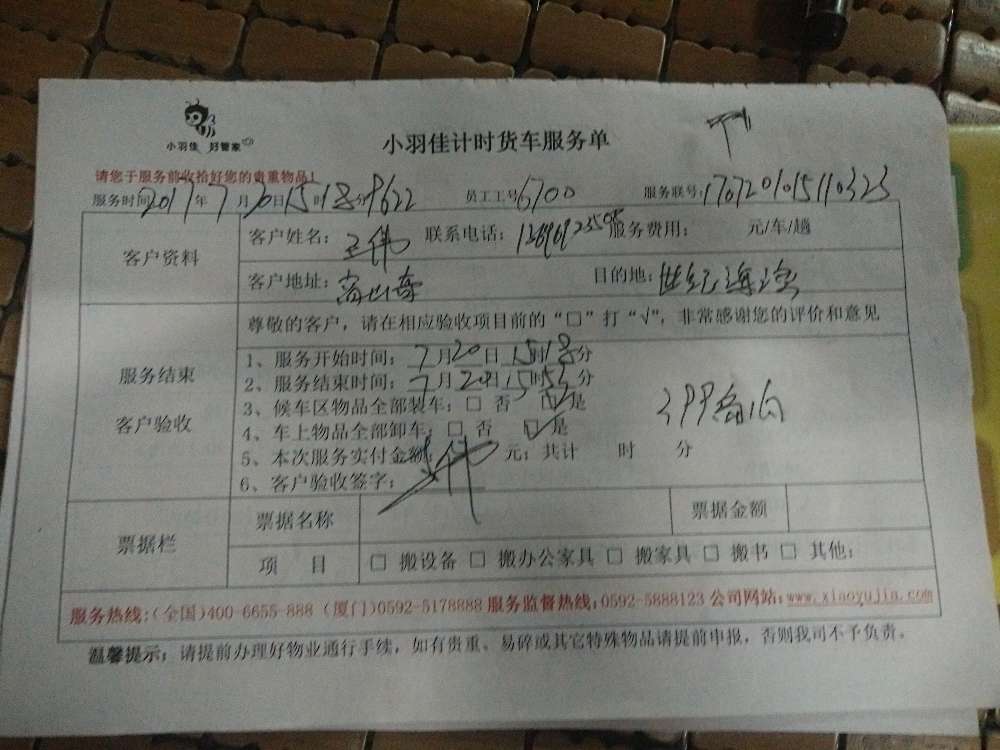 小羽佳 好管家
小羽佳计时货车服务单
请您于服务前收拾好您的贵重物品!
服务时间2017年7月20日15时18分9622 员工工号6700 服务联号:1707201015110323
客户资料
客户姓名: 王伟 联系电话: 服务费用: 元/车/趟
客户地址: 目的地: 世纪海湾
尊敬的客户,请在相应验收项目前的“□”打“√”,非常感谢您的评价和意见
服务结束
客户验收
1、服务开始时间: 7月20日15时18分
2、服务结束时间: 7月20日15时53分
3、候车区物品全部装车: □ 否 ☑是
4、车上物品全部卸车: □ 否 ☑是
5、本次服务实付金额: 元; 共计 时 分
6、客户验收签字: 王伟
票据栏
票据名称 票据金额
项 目 □ 搬设备 □ 搬办公家具 □ 搬家具 □ 搬书 □ 其他:
服务热线:(全国)400-6655-888 (厦门)0592-5178888 服务监督热线:0592-5888123 公司网站:www.xiaoyujia.com
温馨提示: 请提前办理好物业通行手续,如有贵重、易碎或其它特殊物品请提前申报,否则我司不予负责。